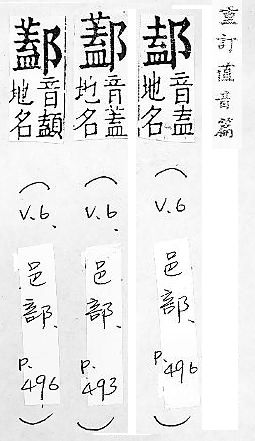 重訂直音篇
音盍
地名
(V.6.邑部、P.496)
音蓋
地名
(V.6.邑部、P.493)
音
地名
(V.6.邑部、P.496)